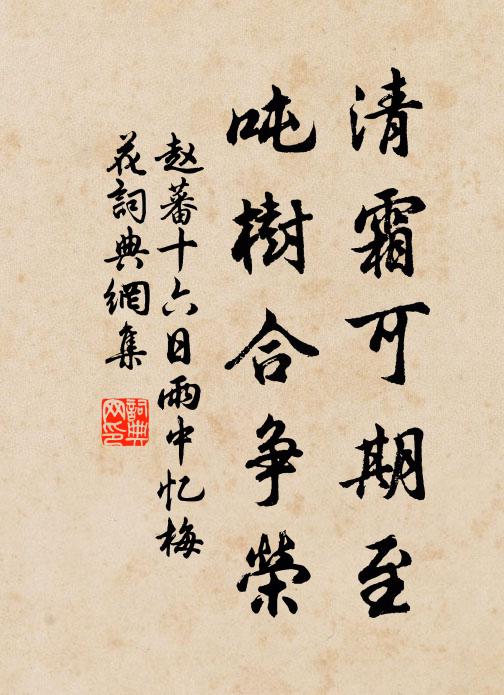 清霜可期至
吨樹合争榮
赵蕃十六日雨中忆梅
花詞典網集
詞典
网印